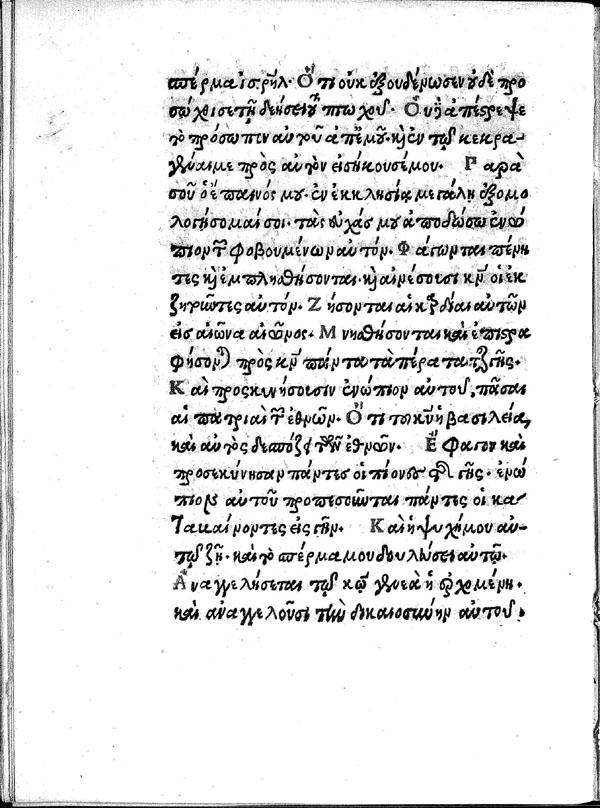 σπέρμα ἰσρὴλ· Ὅτι οὐκ ἐξουδένωσεν οὐδὲ προ
σώχθισε τῇ δεήσει τοῦ πτωχοῦ· Οὐδὲ ἀπέστρεψε
τὸ πρόσωπον αὐτοῦ ἀπ' ἐμοῦ· καὶ ἐν τῷ κεκρα
γέναι με πρὸς αὐτὸν εἰσήκουσέ μου· Παρὰ
σοῦ ὁ ἔπαινός μου· ἐν ἐκκλησίᾳ μεγάλῃ ἐξομο
λογήσομαί σοι· τὰς εὐχάς μου ἀποδώσω ἐνώ
πιον τῶν φοβουμένων αὐτόν· Φάγονται πένη
τες καὶ ἐμπλησθήσονται· καὶ αἰνέσουσι κν οἱ ἐκ
ζητοῦντες αὐτόν· Ζήσονται αἱ καρδίαι αὐτῶν
εἰς αἰῶνα αἰῶνος· Μνησθήσονται καὶ ἐπιστρα
φήσονται πρὸς κν πάντα τὰ πέρατα τῆς γῆς·
Καὶ προσκυνήσουσιν ἐνώπιον αὐτοῦ, πᾶσαι
αἱ πατριαὶ τῶν ἐθνῶν· Ὅτι τοῦ κυ ἡ βασιλεία,
καὶ αὐτὸς δεσπόζει τῶν ἐθνῶν· Ἔφαγον καὶ
προσεκύνησαν πάντες οἱ πίονες τῆς γῆς· ἐνώ
πιον αὐτοῦ προπεσοῦνται πάντες οἱ κα
ταβαίνοντες εἰς γῆν· Καὶ ἡ ψυχή μου αὐ
τῷ ζῇ· καὶ τὸ σπέρμα μου δουλεύσει αὐτῷ·
Ἀναγγελήσεται τῷ κω γενεὰ ἡ ἐρχομένη·
καὶ ἀναγγελοῦσι τὴν δικαιοσύνην αὐτοῦ·